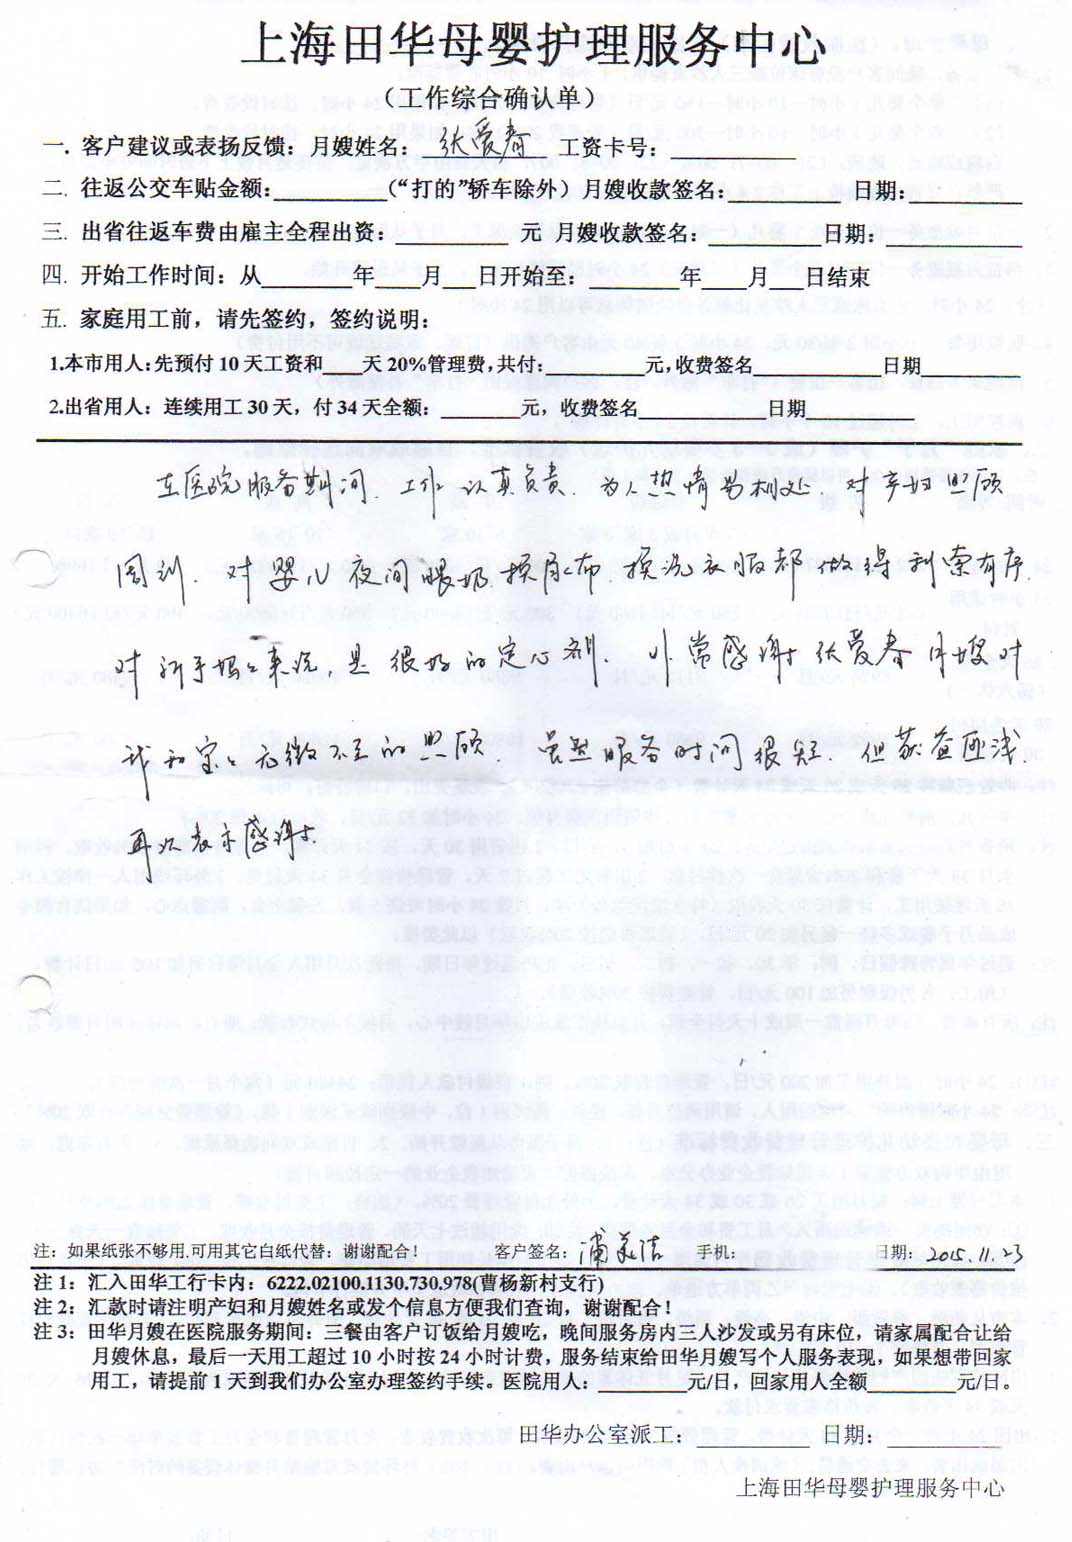 上海田华母婴护理服务中心
(工作综合确认单)
一. 客户建议或表扬反馈：月嫂姓名：张爱春 工资卡号：
二. 往返公交车贴金额：（“打的”轿车除外）月嫂收款签名： 日期：
三. 出省往返车费由雇主全程出资： 元 月嫂收款签名： 日期：
四. 开始工作时间：从 年 月 日开始至： 年 月 日结束
五. 家庭用工前，请先签约，签约说明：
1.本市用人：先预付 10 天工资和 天 20%管理费，共付： 元，收费签名 日期
2.出省用人：连续用工 30 天，付 34 天全额： 元，收费签名 日期
在医院服务期间 工作认真负责 为人热情易相处 对产妇照顾
周到 对婴儿夜间喂奶 换尿布 换洗衣服都做得利索有序
对新手妈妈来说是很好的定心剂 非常感谢张爱春月嫂对
我和宝宝无微不至的照顾 虽然服务时间很短 但获益匪浅
再次表示感谢
注：如果纸张不够用,可用其它白纸代替：谢谢配合！ 客户签名： 手机： 日期：2015.11.23
注 1：汇入田华工行卡内：6222.02100.1130.730.978(曹杨新村支行)
注 2：汇款时请注明产妇和月嫂姓名或发个信息方便我们查询，谢谢配合！
注 3：田华月嫂在医院服务期间：三餐由客户订饭给月嫂吃，晚间服务房内三人沙发或另有床位，请家属配合让给
月嫂休息，最后一天用工超过 10 小时按 24 小时计费，服务结束给田华月嫂写个人服务表现，如果想带回家
用工，请提前 1 天到我们办公室办理签约手续。医院用人： 元/日，回家用人全额 元/日。
田华办公室派工： 日期：
上海田华母婴护理服务中心